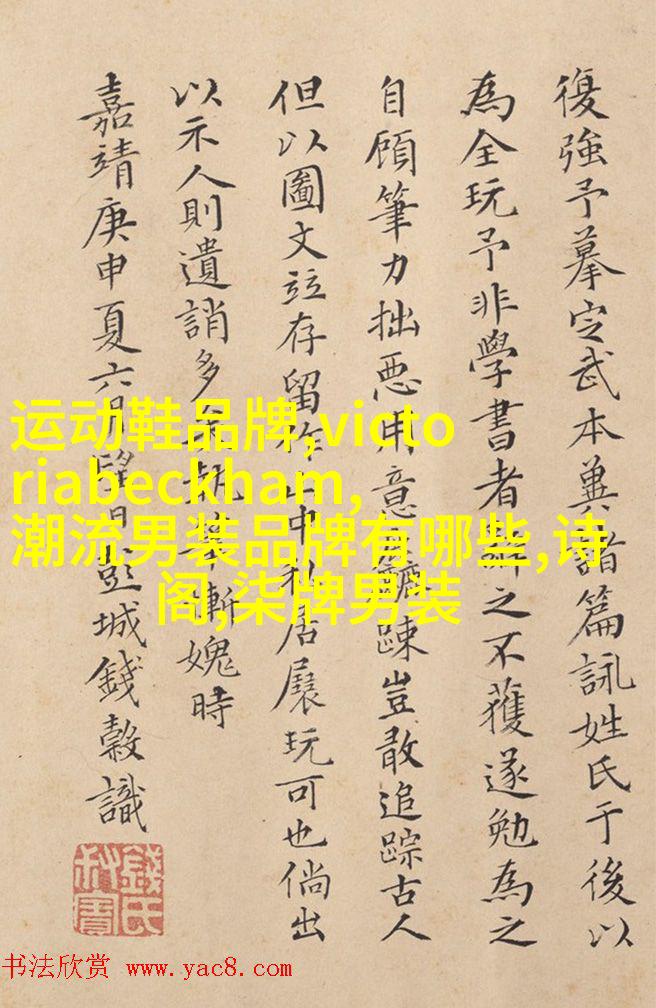 復強予摹定武本冀諸篇詠姓氏于後以
為全玩予非學書者之不獲遂勉為之
自顧筆力拙惡用意踈豈敢追踪古人
但以圖文竝存留作山中私居展玩可也倘出
以示人則遺誚多慚媿時
嘉靖庚申夏六月望日彭城錢穀識
錢氏叔寶
运动鞋品牌,victo
riabeckham,
潮流男装品牌有哪些,诗
阁,柒牌男装
书法欣赏 www.yac8.com